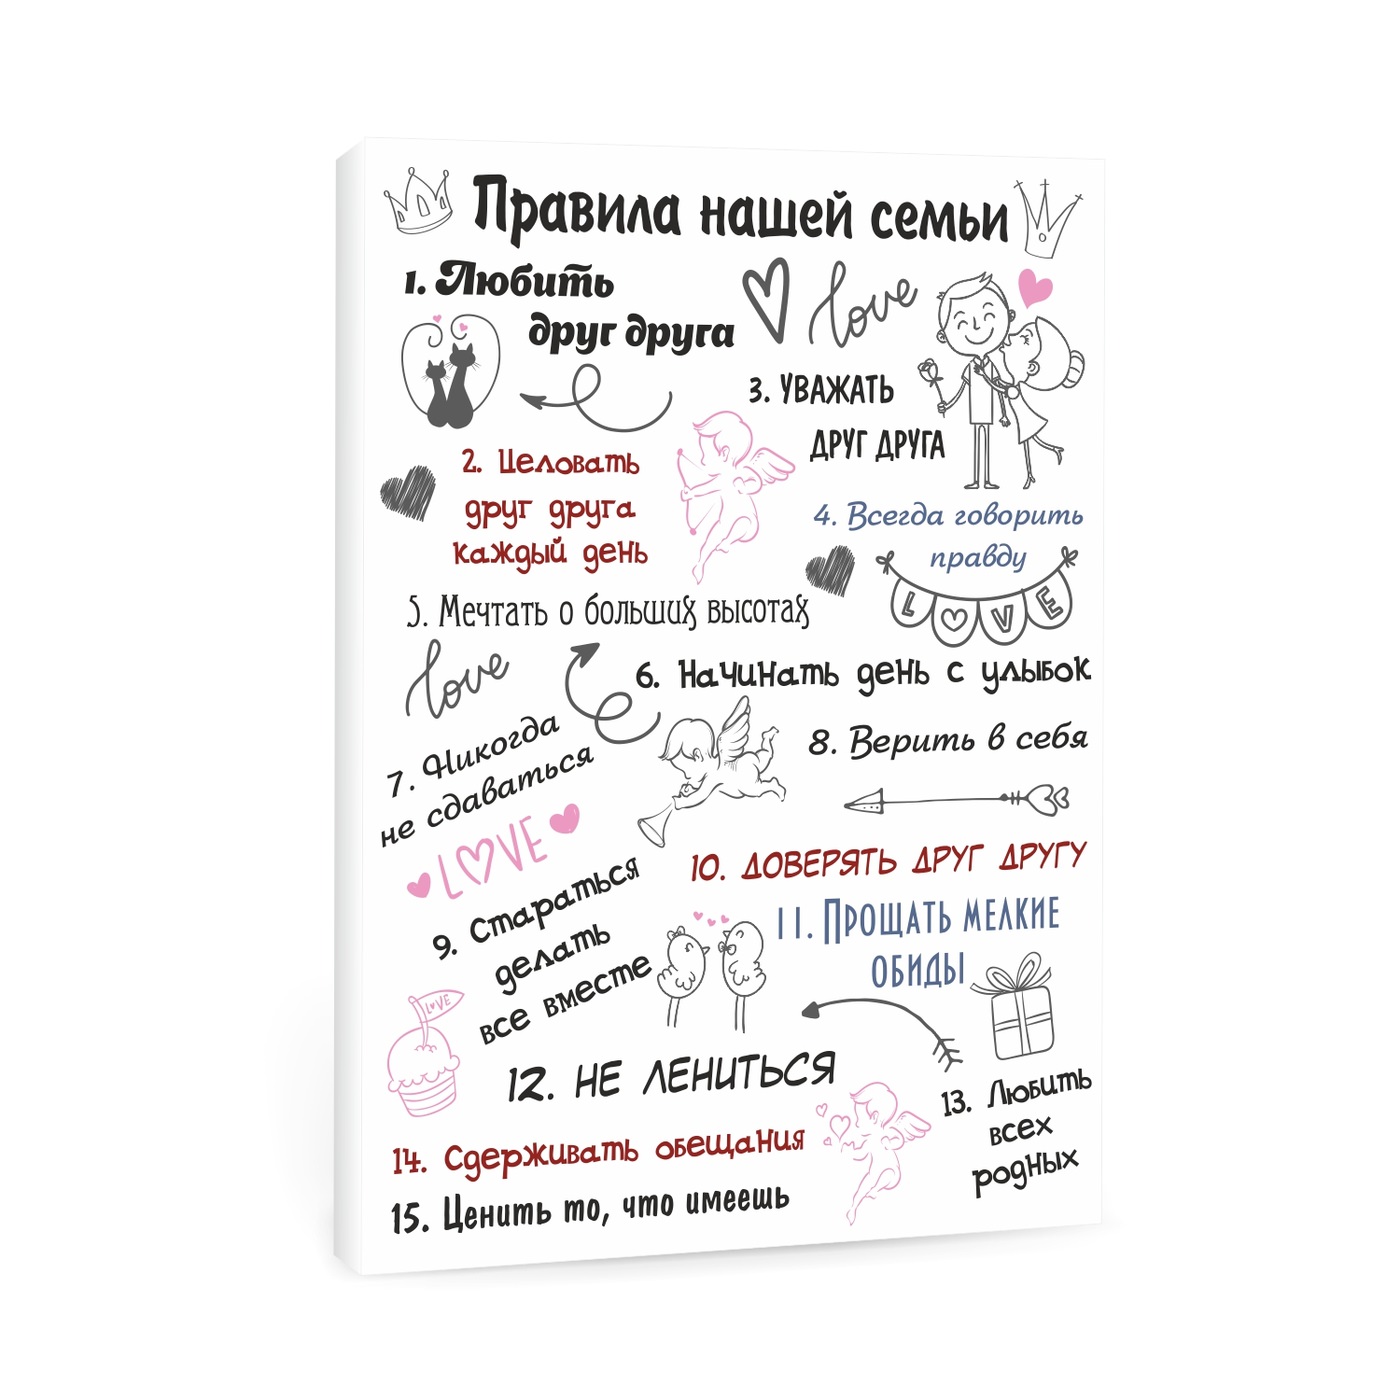 Правила нашей семьи
1. Любить
друг друга
love
3. УВАЖАТЬ
ДРУГ ДРУГА
2. Целовать
друг друга
каждый день
4. Всегда говорить
правду
LOVE
5. Мечтать о больших высотах
love
6. Начинать день с улыбок
7. Никогда
не сдаваться
8. Верить в себя
LOVE
9. Стараться
делать
все вместе
10. ДОВЕРЯТЬ ДРУГ ДРУГУ
11. ПРОЩАТЬ МЕЛКИЕ
ОБИДЫ
LOVE
12. НЕ ЛЕНИТЬСЯ
13. Любить
всех
родных
14. Сдерживать обещания
15. Ценить то, что имеешь